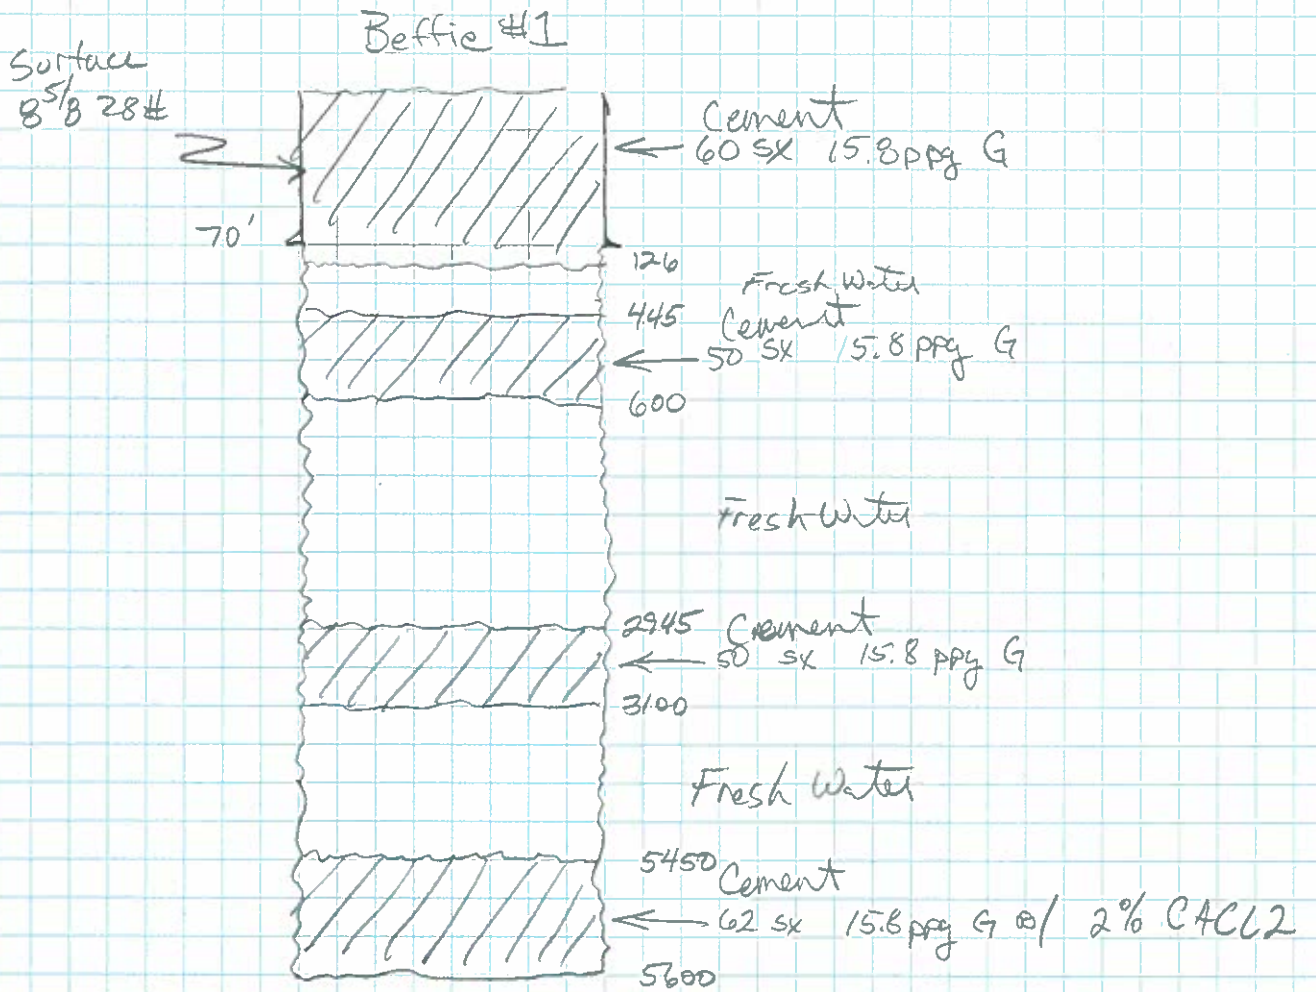 Beffie #1
Surface
8 5/8 28#
Cement
60 sx 15.8 ppg G
70'
126
Fresh Water
445
Cement
50 sx 15.8 ppg G
600
Fresh Water
2945 Cement
50 sx 15.8 ppg G
3100
Fresh Water
5450 Cement
62 sx 15.8 ppg G w/ 2% CACL2
5600